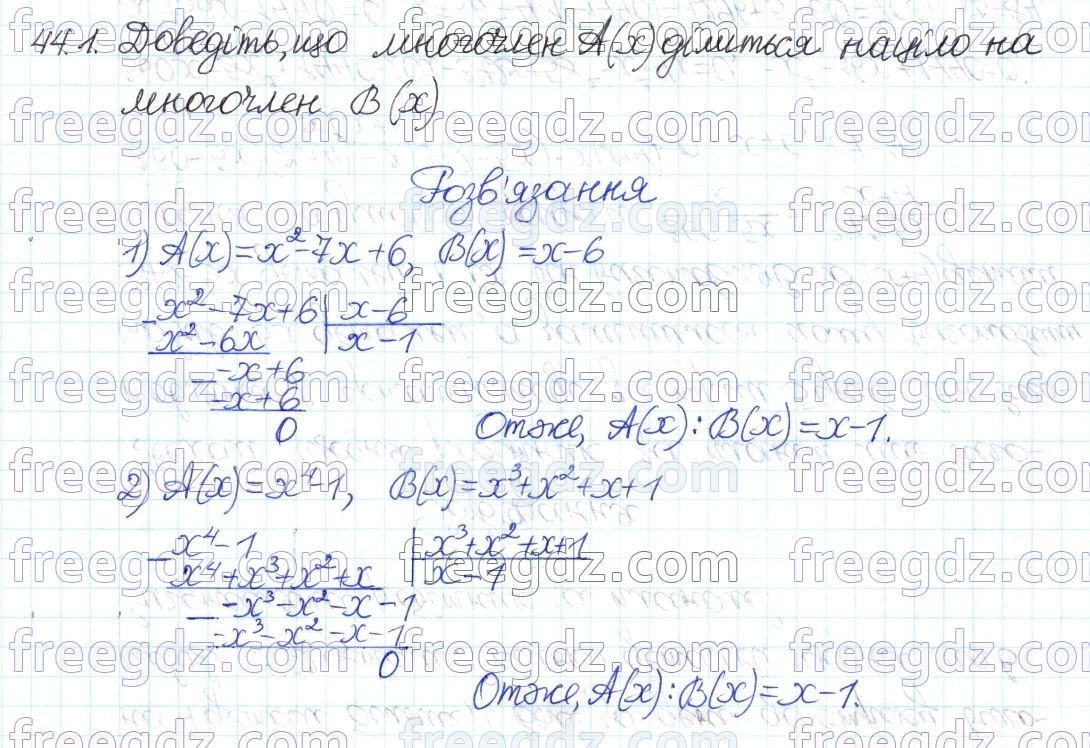 44.1. Доведіть, що многочлен A(x) ділиться націло на
многочлен B(x)
Розв'язання
1) A(x)=x²-7x+6, B(x)=x-6
x²-7x+6 | x-6
x²-6x | x-1
-x+6
-x+6
0
Отже, A(x):B(x)=x-1.
2) A(x)=x⁴-1, B(x)=x³+x²+x+1
x⁴-1 | x³+x²+x+1
x⁴+x³+x²+x | x-1
-x³-x²-x-1
-x³-x²-x-1
0
Отже, A(x):B(x)=x-1.
freegdz.com